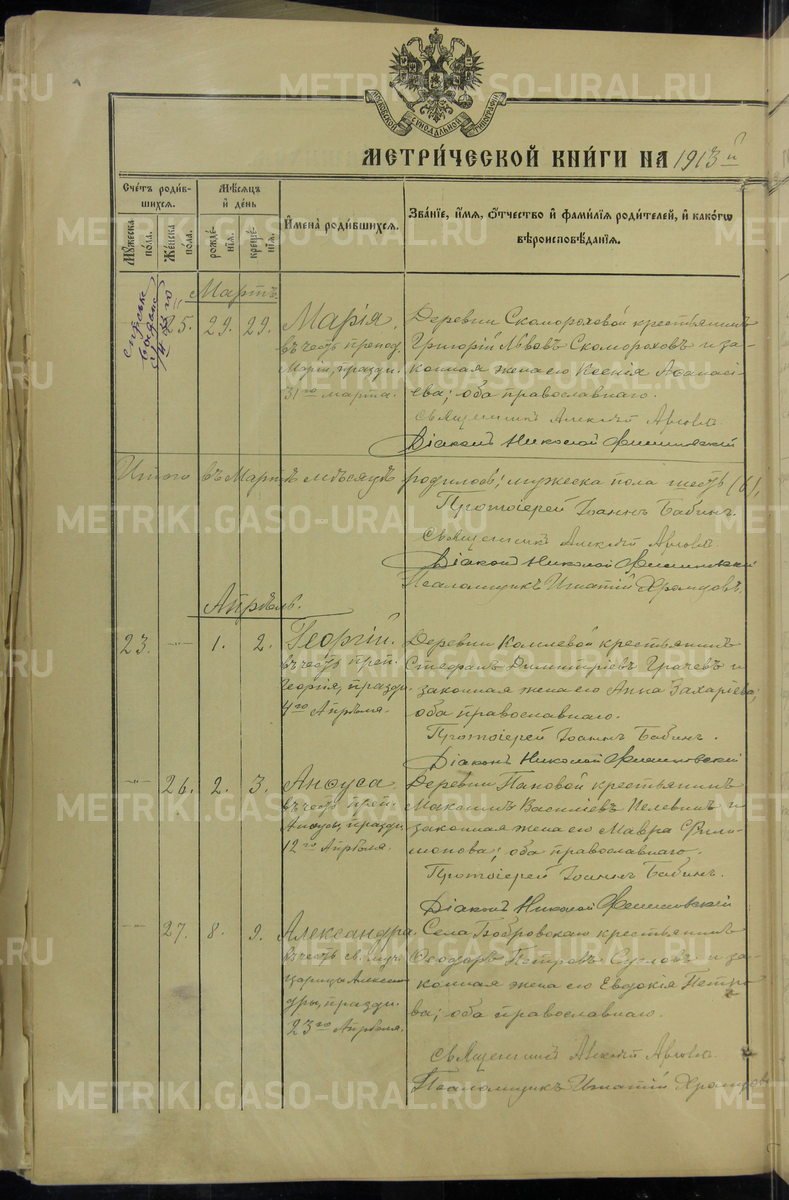 МОСКОВСКОЙ СѴНОДАЛЬНОЙ ТИПОГРАФІИ
МЕТРИ́ЧЕСКОЙ КНИ́ГИ НА 1913 й
Счетъ роди́вшихся.
Мѣсяцъ и день
Имена̀ роди́вшихся.
Зва́нїе, и́мя, о́тчество и фами́лїя роди́телей, и како́гѡ
вѣроисповѣ́данїя.
Мꙋ́жеска по́ла.
Же́нска по́ла.
рожде́нїя.
креще́нїя.
Мартъ
25. 29. 29. Марія.
въ честь препод.
Маріи, праздн.
31го марта.
Деревни Скомороховой крестьянинъ
Григорій Львовъ Скомороховъ и за-
конная жена его Ксенія Аѳанасі-
ева; оба православнаго.
Священникъ Алексѣй
Діаконъ Николай
Итого въ Мартѣ мѣсяцѣ родилось: мужеска пола шесть (6),
Протоіерей Іоаннъ Бабинъ.
Священникъ Алексѣй
Діаконъ Николай
Псаломщикъ Игнатій Хромцовъ.
Апрѣль.
23. —"— 1. 2. Георгій.
въ честь преп.
Георгія, праздн.
4го Апрѣля.
Деревни крестьянинъ
Стефанъ Димитріевъ Грачевъ и
законная жена его Анна Захаріева;
оба православнаго.
Протоіерей Іоаннъ Бабинъ.
Діаконъ Николай
—"— 26. 2. 3. Анѳуса
въ честь преп.
Анѳусы, праздн.
12го Апрѣля.
Деревни Пановой крестьянинъ
Максимъ Василіевъ Пелевинъ и
законная жена его Мавра Фили-
монова; оба православнаго.
Протоіерей Іоаннъ Бабинъ.
Діаконъ Николай
—"— 27. 8. 9. Александра
въ честь св. муч.
царицы Алексан-
дры, праздн.
23го Апрѣля.
Села Бобровскаго крестьянинъ
Ѳеодоръ Петровъ Сусловъ и за-
конная жена его Евдокія Петро-
ва; оба православнаго.
Священникъ Алексѣй
Псаломщикъ Игнатій Хромцовъ
METRIKI.GASO-URAL.RU